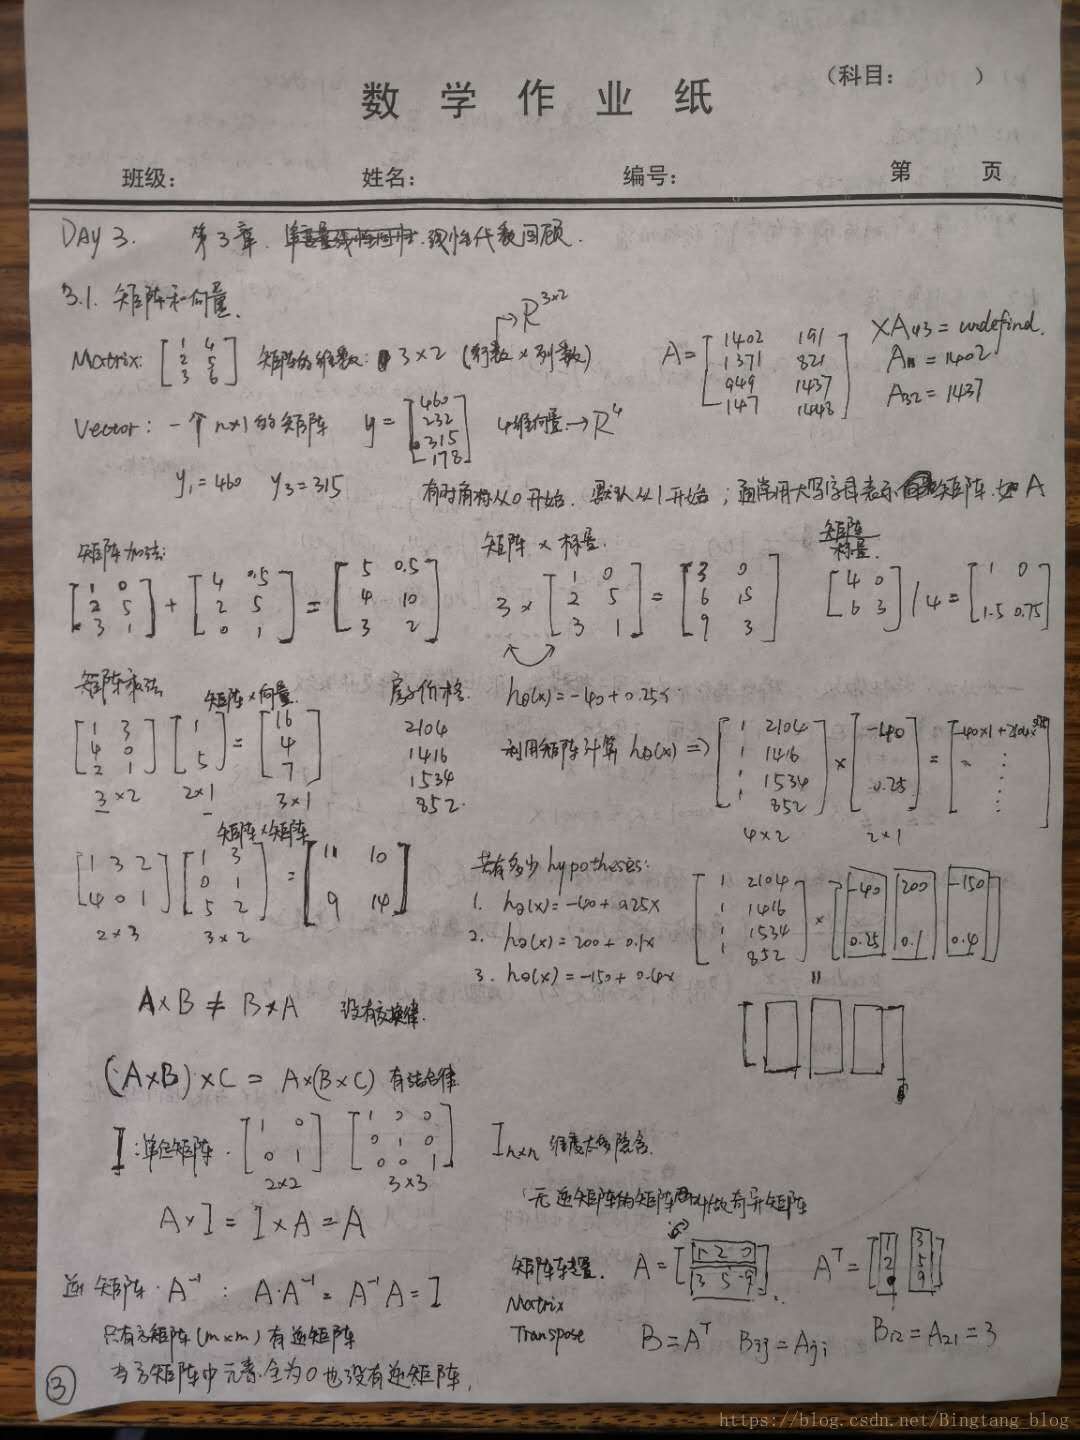 （科目： ）
数 学 作 业 纸
班级： 姓名： 编号： 第 页
DAY 3. 第3章. 线性代数回顾.
3.1. 矩阵和向量.
Matrix: [1 4; 2 5; 3 6] 矩阵的维数: 3×2 (行数×列数) → R^{3×2}
A = [1402 191; 1371 821; 949 1437; 147 1448]
×A43 = undefind.
A11 = 1402
A32 = 1437
Vector: 一个 n×1 的矩阵 y = [460; 232; 315; 178] 4维向量 → R^4
y1=460 y3=315
有时角标从0开始. 默认从1开始; 通常用大写字母表示矩阵. 如 A
矩阵加法:
[1 0; 2 5; 3 1] + [4 0.5; 2 5; 0 1] = [5 0.5; 4 10; 3 2]
矩阵 × 标量.
3 × [1 0; 2 5; 3 1] = [3 0; 6 15; 9 3]
矩阵/标量.
[4 0; 6 3] / 4 = [1 0; 1.5 0.75]
矩阵乘法 矩阵×向量.
[1 3; 4 0; 2 1] [1; 5] = [16; 4; 7]
3×2 2×1 3×1
房子价格.
2104
1416
1534
852.
hθ(x) = -40 + 0.25x
利用矩阵计算 hθ(x) => [1 2104; 1 1416; 1 1534; 1 852] × [-40; 0.25] = [-40×1 + 2104×0.25
4×2 2×1
矩阵×矩阵
[1 3 2; 4 0 1] [1 3; 0 1; 5 2] = [11 10; 9 14]
2×3 3×2
共有多少 hypotheses:
1. hθ(x) = -40 + 0.25x
2. hθ(x) = 200 + 0.1x
3. hθ(x) = -150 + 0.4x
[1 2104; 1 1416; 1 1534; 1 852] × [-40 200 -150; 0.25 0.1 0.4]
=
A×B ≠ B×A 没有交换律.
(A×B)×C = A×(B×C) 有结合律
I: 单位矩阵. [1 0; 0 1] [1 0 0; 0 1 0; 0 0 1]
2×2 3×3
I n×n 维度
A×I = I×A = A
无逆矩阵的矩阵叫做奇异矩阵
逆矩阵. A^-1 : A·A^-1 = A^-1 A = I
只有方矩阵(m×m)有逆矩阵
当方矩阵中元素全为0也没有逆矩阵.
矩阵转置. A = [1 2 0; 3 5 9] A^T = [1 3; 2 5; 9]
Matrix
Transpose B = A^T Bij = Aji B12 = A21 = 3
③
https://blog.csdn.net/Bingtang_blog